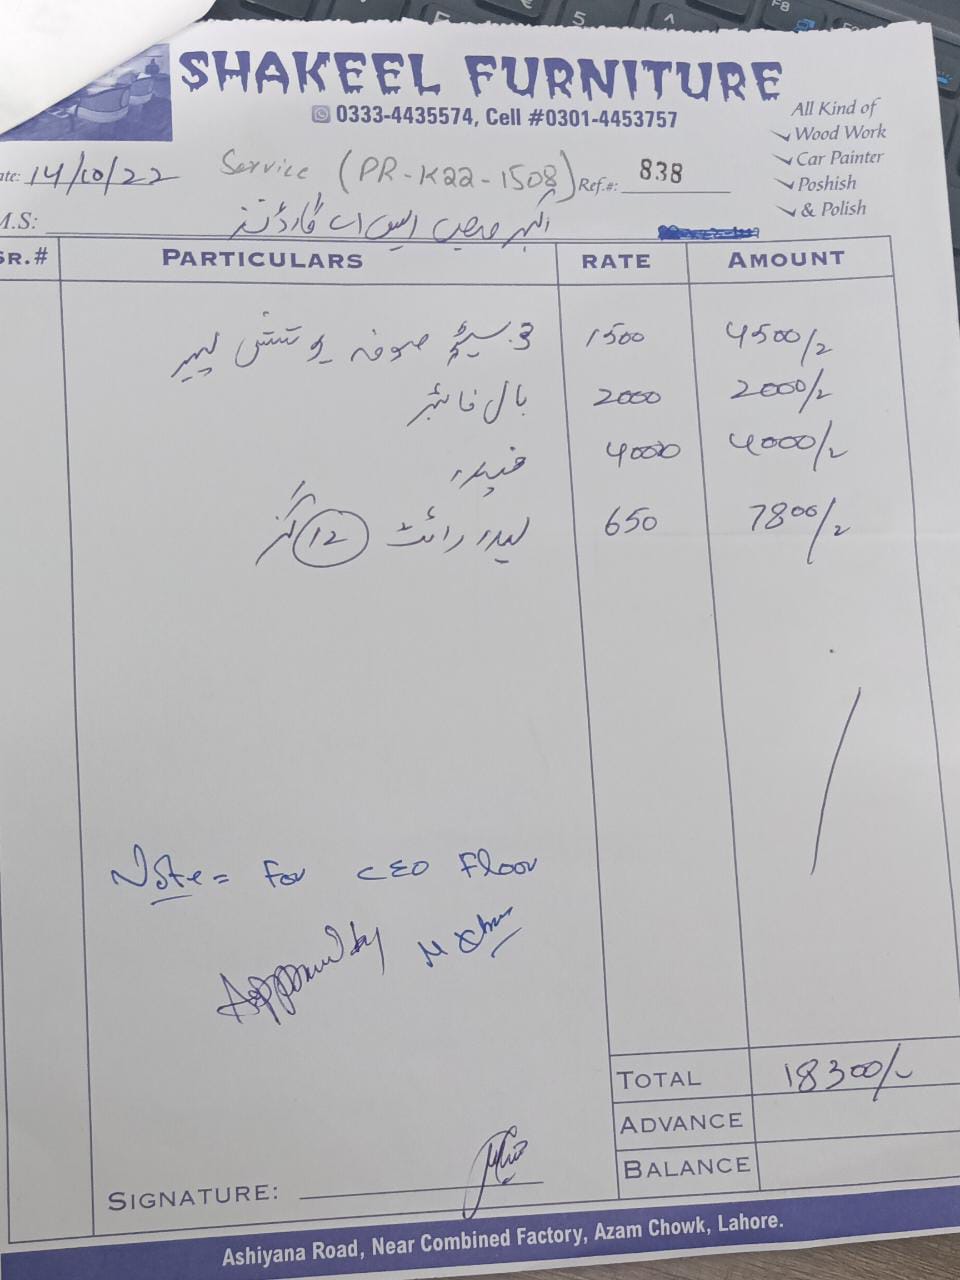 SHAKEEL FURNITURE
0333-4435574, Cell #0301-4453757
All Kind of
Wood Work
Car Painter
Poshish
& Polish
ate: 14/10/22 Service (PR-K22-1508) Ref.#: 838
M.S: اکبر ایس اے گارڈنز
SR.# PARTICULARS RATE AMOUNT
3 سیٹر صوفہ پوشش لیبر 1500 4500/-
بال فائبر 2000 2000/-
4000 4000/-
لیدر رائٹ 12 گز 650 7800/-
Note = For CEO Floor
Approved by
TOTAL 18300/-
ADVANCE
BALANCE
SIGNATURE:
Ashiyana Road, Near Combined Factory, Azam Chowk, Lahore.